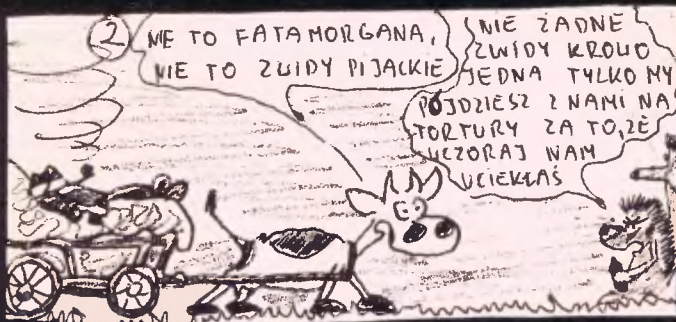 2
NIE TO FATAMORGANA,
NIE TO ZWIDY PIJACKIE
NIE ŻADNE
ZWIDY KROWO
JEDNA TYLKO MY
PÓJDZIESZ Z NAMI NA
TORTURY ZA TO, ŻE
WCZORAJ NAM
UCIEKŁAŚ